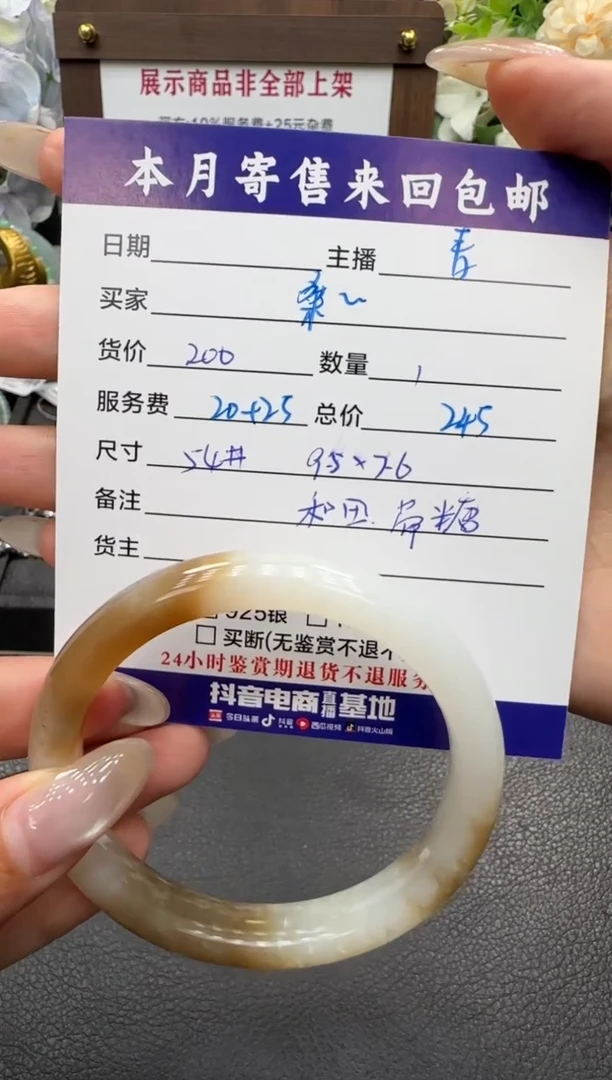 展示商品非全部上架
买方:10%服务费+25元杂费
本月寄售来回包邮
日期 主播 青
买家 桑~
货价 200 数量 1
服务费 20+25 总价 245
尺寸 54# 9.5×7.6
备注 和田. 糖
货主
925银
买断(无鉴赏不退
24小时鉴赏期退货不退服务
抖音电商直播基地
今日头条 抖音 西瓜视频 抖音火山版